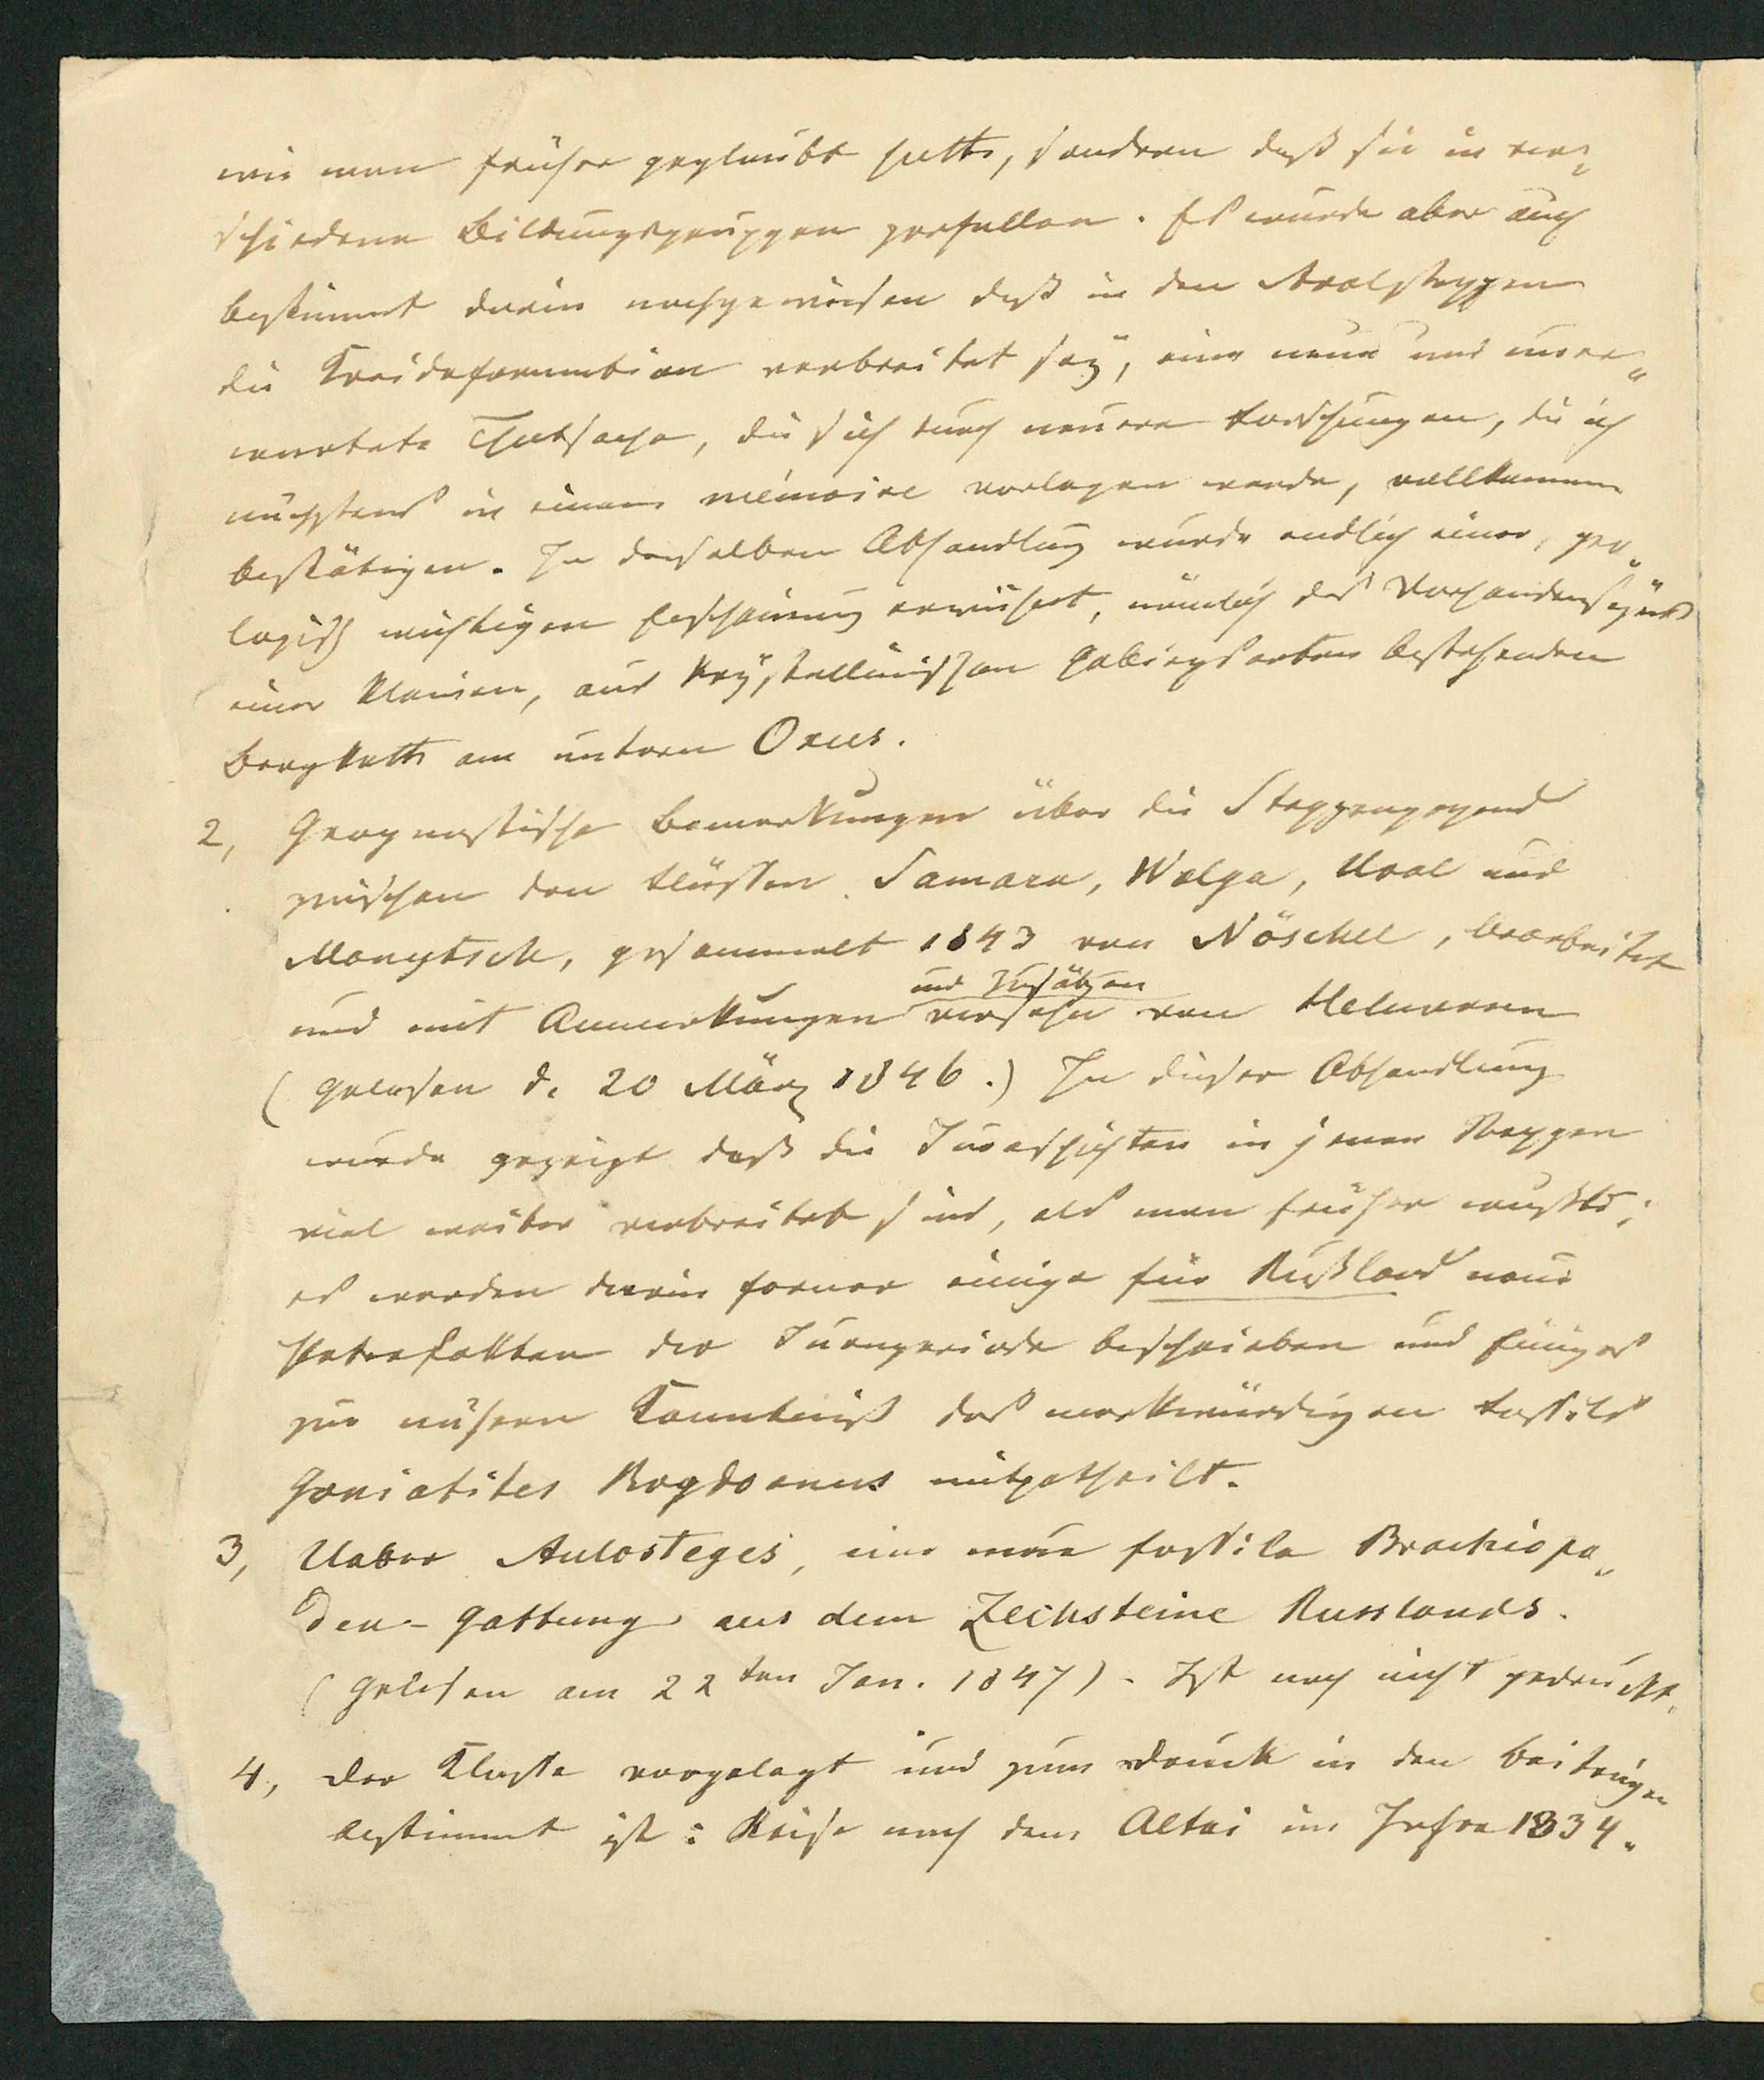 wie man früher geglaubt hatte, sondern daß sie in ver=
schiedene Bildungsgruppen zerfallen. Es wurde aber auch
bestimmt darin nachgewiesen daß in den Aralsteppen
die Kreideformation verbreitet sey, eine neue und uner„
wartete Thatsache, die sich durch neuere Forschungen, die ich
nächstens in einem mémoire vorlegen werde, vollkommen
bestätigen. In derselben Abhandlung wurde endlich einer, geo„
logisch wichtigen Erscheinung erwähnt, nämlich des Vorhandenseyns
einer kleinen, aus krystallinischen Gebirgsarten bestehenden
Bergkette am untern Oxus.
2, Geognostische Bemerkungen über die Steppengegend
zwischen den Flüssen Samara, Wolga, Ural und
Manytsch, gesammelt 1843 von Nöschel, bearbeitet
und Zusätzen
und mit Anmerkungen versehn von Helmersen
(gelesen d. 20 März 1846.) In dieser Abhandlung
wurde gezeigt daß die Juraschichten in jenen Steppen
viel weiter verbreitet sind, als man früher wußte;
es werden darin ferner einige für Rußland neue
Petrefakten der Juraperiode beschrieben und Einiges
zur nähern Kenntniß des merkwürdigen Fossils
Goniatites Bogdoanus mitgetheilt.
3, Ueber Aulosteges, eine neue fossile Brachiopo„
den-Gattung aus dem Zechsteine Russlands.
(gelesen am 22ten Jan. 1847) - Ist noch nicht gedruckt.
4, Der Klasse vorgelegt und zum Druck in den Beiträgen
bestimmt ist: Reise nach dem Altai im Jahre 1834.